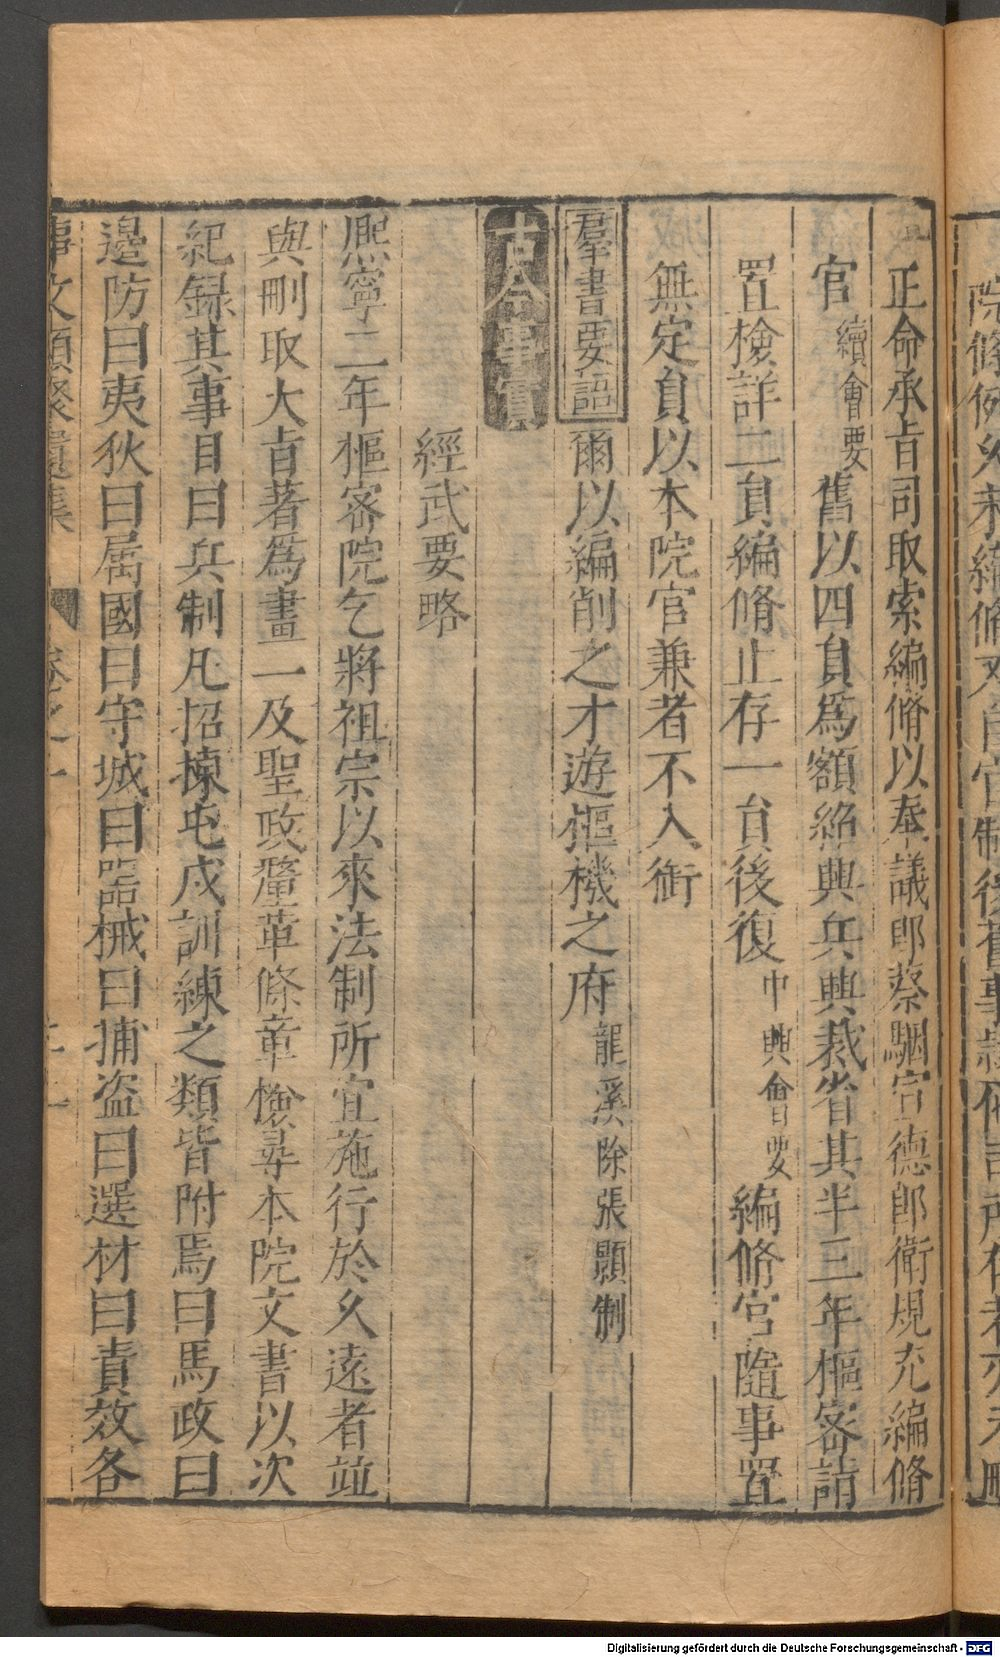 正命承㫖司取索編脩以奉議郎蔡駰宣德郎衛規充編脩
官續會要舊以四員爲額紹興兵興裁省其半三年樞密請
置檢詳二員編脩止存一員後復中興會要編脩官隨事置
無定員以本院官兼者不入銜
羣書要語 爾以編削之才遊樞機之府龍溪除張顯制
古今事實
經武要略
熈寧二年樞密院乞將祖宗以來法制所宜施行於久遠者並
與刪取大㫖著爲畫一及聖政釐革條章檢尋本院文書以次
紀録其事目曰兵制凡招揀屯戍訓練之類皆附焉曰馬政曰
邊防曰夷狄曰属國曰守城曰噐械曰捕盗曰選材曰責效各
事文類聚遺集 卷之
Digitalisierung gefördert durch die Deutsche Forschungsgemeinschaft - DFG